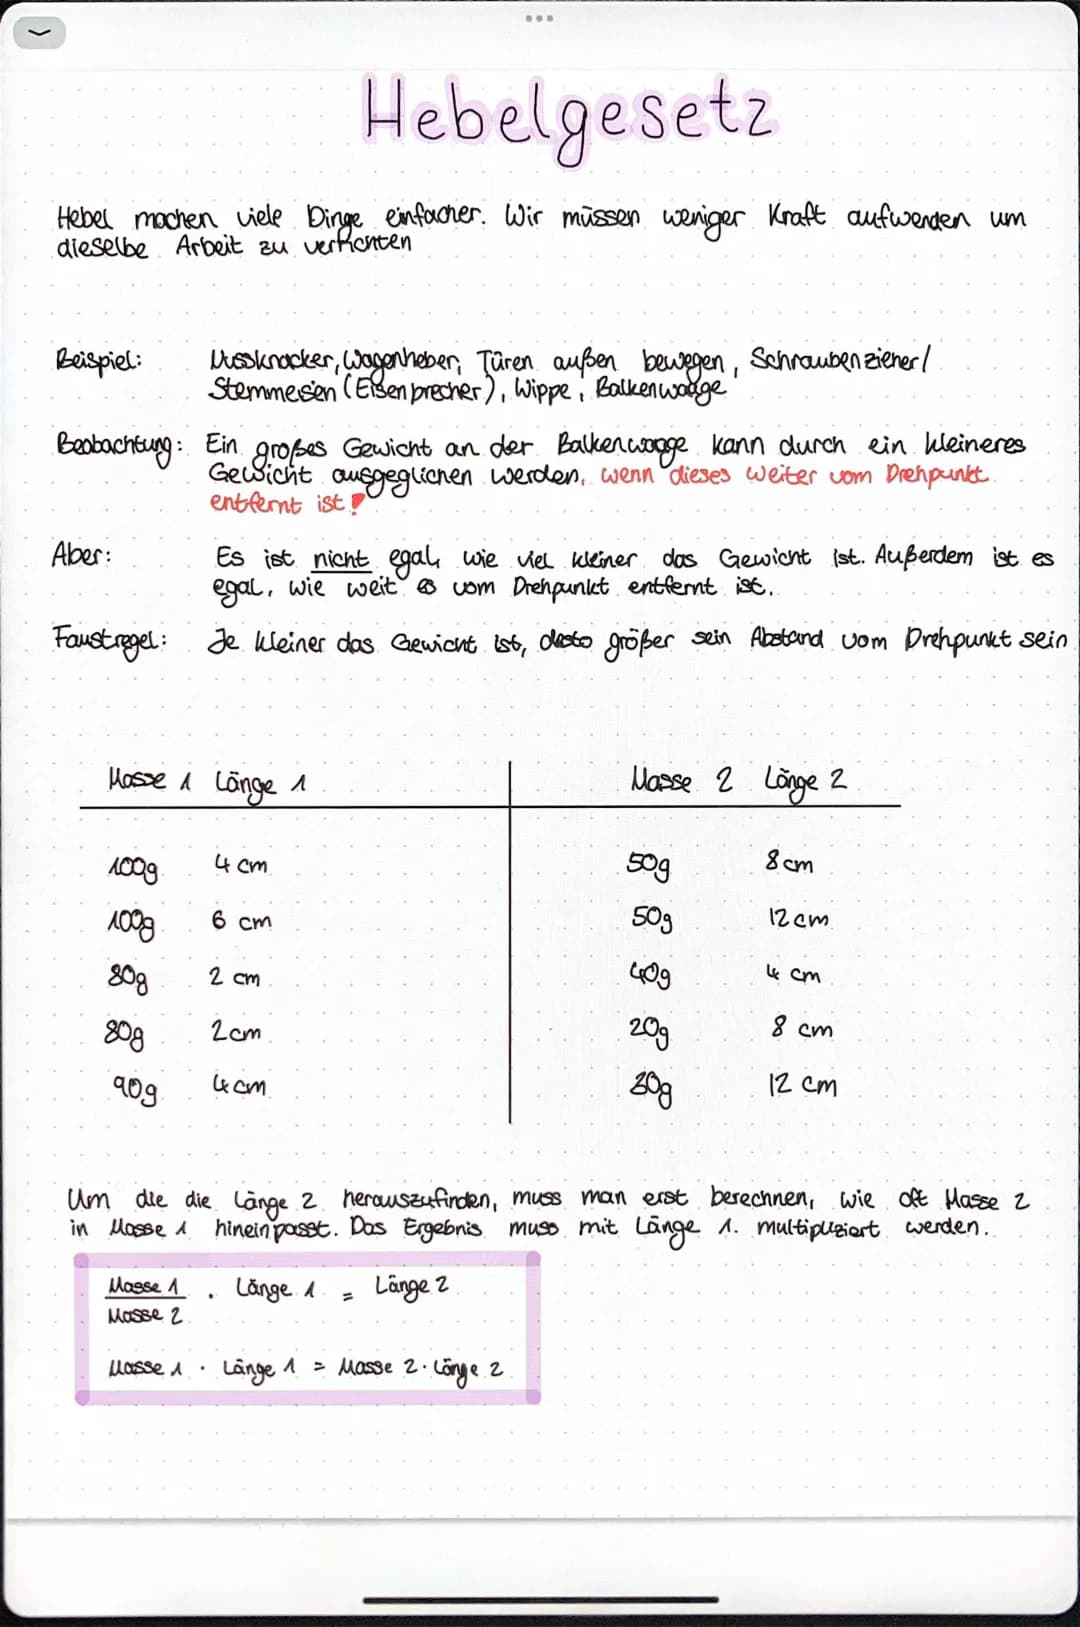 Hebelgesetz
Hebel machen viele Dinge einfacher. Wir müssen weniger Kraft aufwenden um
dieselbe Arbeit zu verrichten
Beispiel: Nussknacker, Wagenheber, Türen außen bewegen, Schraubenziener/
Stemmeisen (Eisenprecher), Wippe, Balkenwaage
Beobachtung: Ein großes Gewicht an der Balkenwaage kann durch ein kleineres
Gewicht ausgeglichen werden, wenn dieses weiter vom Drehpunkt
entfernt ist!
Aber: Es ist nicht egal, wie viel kleiner das Gewicht ist. Außerdem ist es
egal, wie weit es vom Drehpunkt entfernt ist.
Faustregel: Je kleiner das Gewicht ist, desto größer sein Abstand vom Drehpunkt sein
Masse 1 Länge 1 Masse 2 Länge 2
100g 4 cm 50g 8 cm
100g 6 cm 50g 12 cm
80g 2 cm 40g 4 cm
80g 2 cm 20g 8 cm
90g 4 cm 30g 12 cm
Um die die Länge 2 herauszufinden, muss man erst berechnen, wie oft Masse 2
in Masse 1 hineinpasst. Das Ergebnis muss mit Länge 1. multipliziert werden.
Masse 1 · Länge 1 = Länge 2
Masse 2
Masse 1 · Länge 1 = Masse 2 · Länge 2